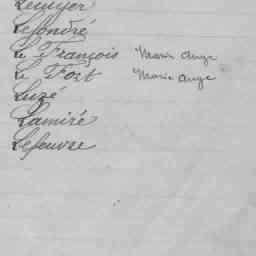 Lecuyer
Lefondré
Le François Marie Ange
Le Fort Marie Ange
Luzé
Lamiré
Lefeuvre